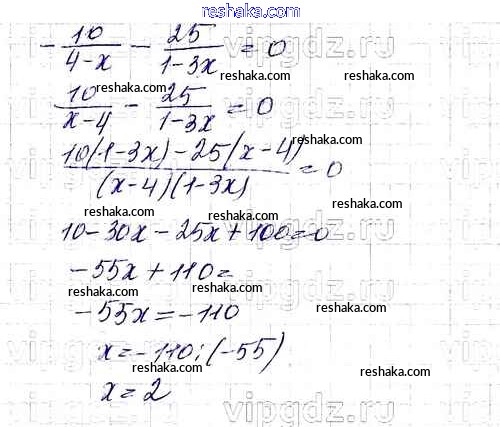 reshaka.com
- 10/(4-x) - 25/(1-3x) = 0
reshaka.com reshaka.com
10/(x-4) - 25/(1-3x) = 0
reshaka.com reshaka.com
(10(1-3x)-25(x-4))/((x-4)(1-3x)) = 0
reshaka.com
10-30x-25x+100=0
reshaka.com
-55x+110=
reshaka.com
-55x=-110
reshaka.com
x=-110:(-55)
reshaka.com
x=2
vipgdz.ru